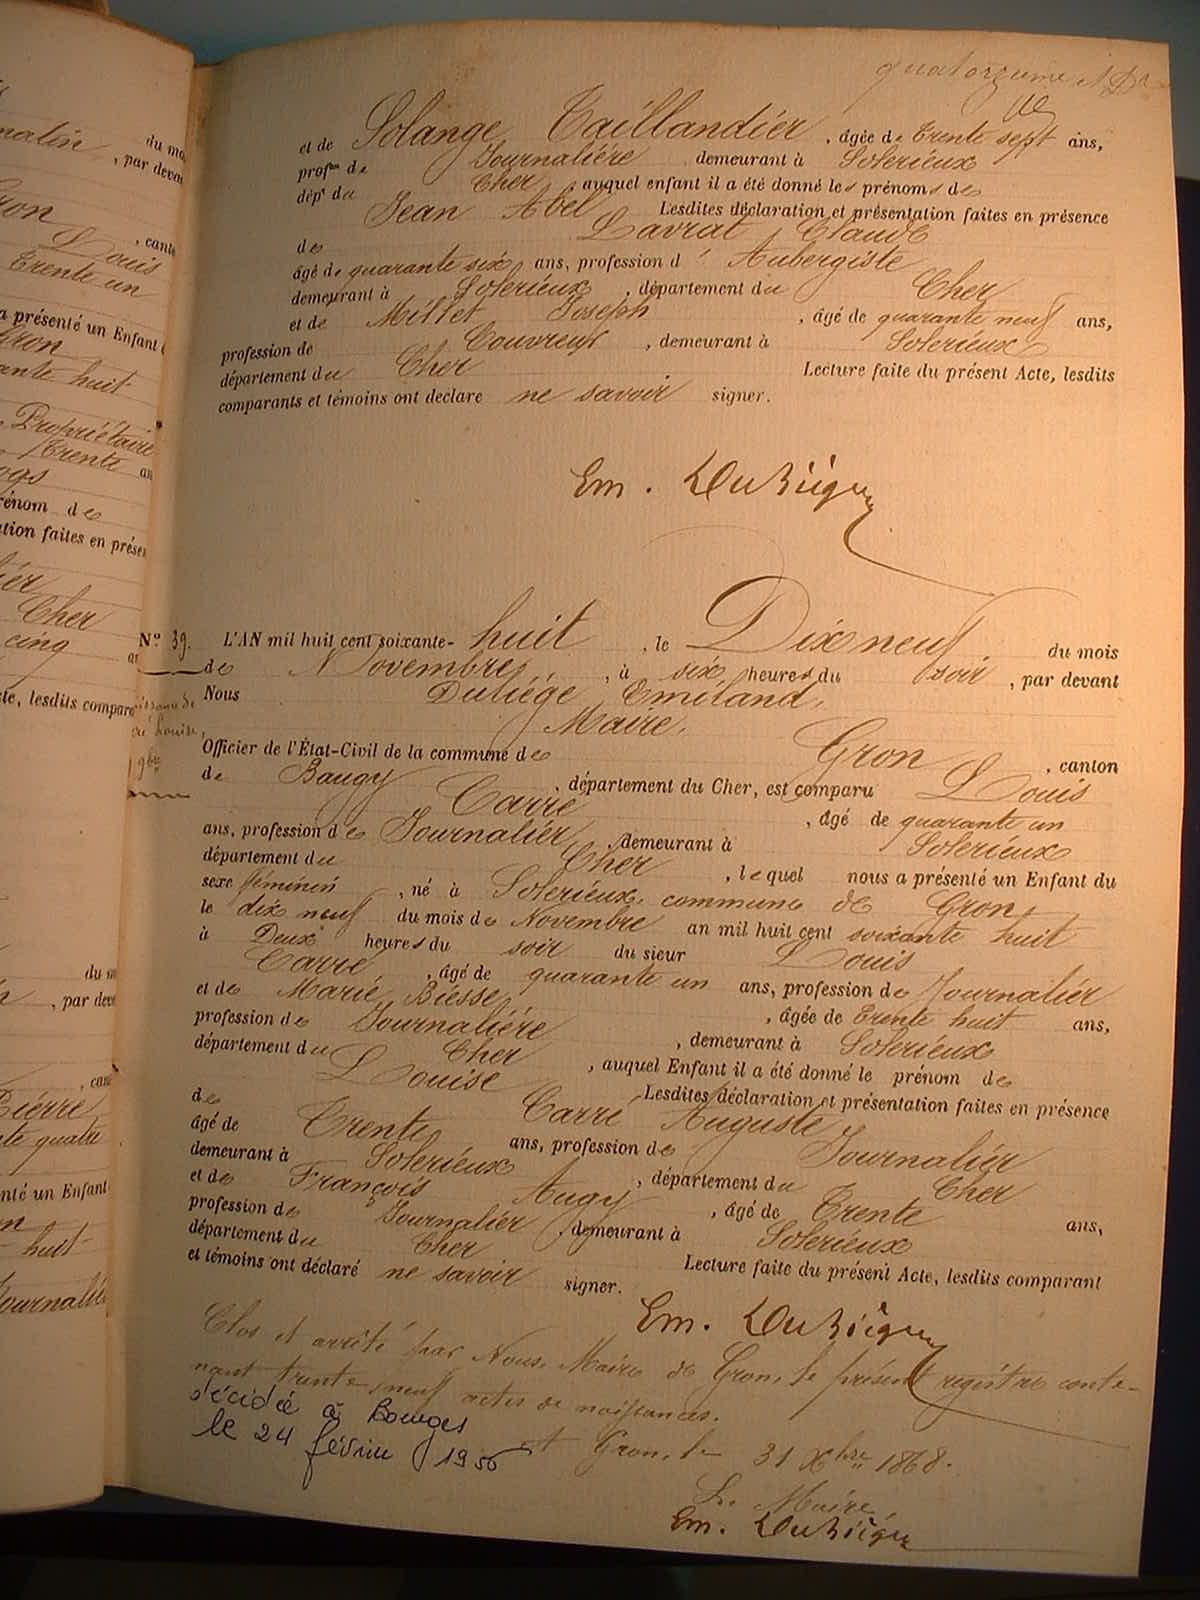 quatorzieme
et de Solange Taillandier, âgée de trente sept ans,
profon de Journaliére demeurant à Solerieux
dépt du Cher auquel enfant il a été donné les prénoms de
Jean Abel Lesdites déclaration et présentation faites en présence
de Lavrat Claude
âgé de quarante six ans, profession d' Aubergiste
demeurant à Solerieux, département du Cher
et de Millet Joseph, âgé de quarante neuf ans,
profession de Couvreur, demeurant à Solerieux
département du Cher Lecture faite du présent Acte, lesdits
comparants et témoins ont declare ne savoir signer.
Em. Duliège
No 39. L'AN mil huit cent soixante- huit, le Dix neuf du mois
de Novembre, à six heures du soir, par devant
Nous Duliége Emiland,
Maire,
Officier de l'État-Civil de la commune de Gron, canton
de Baugy, département du Cher, est comparu Louis
Carré, âgé de quarante un
ans, profession de Journalier, demeurant à Solerieux
département du Cher, lequel nous a présenté un Enfant du
sexe féminin, né à Solerieux, commune de Gron,
le dix neuf du mois de Novembre an mil huit cent soixante huit
à Deux heures du soir du sieur Louis
Carré, âgé de quarante un ans, profession de Journalier
et de Marie Biesse, âgée de trente huit ans,
profession de Journaliére, demeurant à Solerieux
département du Cher, auquel Enfant il a été donné le prénom de
Louise Lesdites déclaration et présentation faites en présence
de Carré Auguste
âgé de Trente ans, profession de Journalier
demeurant à Solerieux, département du Cher
et de François Augy, âgé de Trente ans,
profession de Journalier, demeurant à Solerieux
département du Cher Lecture faite du présent Acte, lesdits comparant
et témoins ont déclaré ne savoir signer.
Em. Duliège
Clos et arrêté par Nous, Maire de Gron, le présent registre conte-
nant trente neuf actes de naissances.
décidée à Bourges
le 24 février 1956
A Gron, le 31 Xbre 1868.
Le Maire,
Em. Duliège